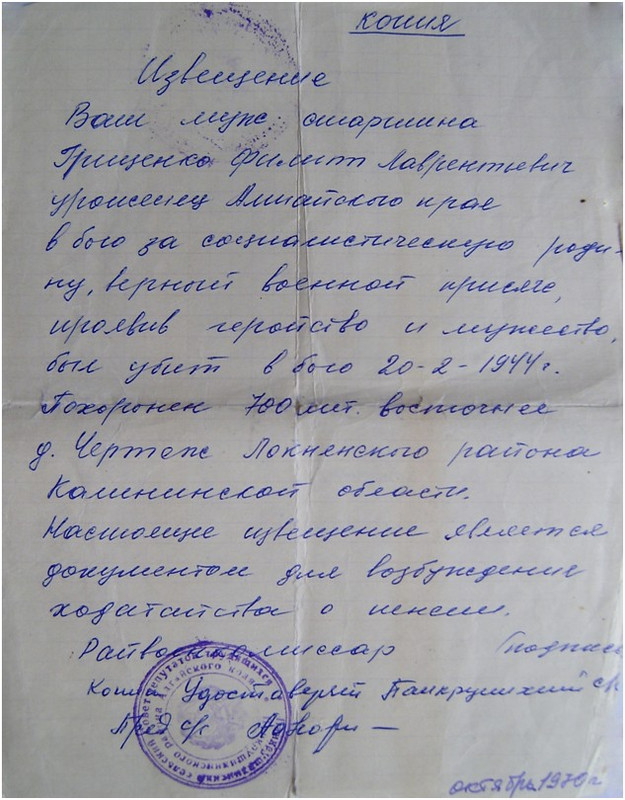 копия
Извещение
Ваш муж старшина
Грищенко Филипп Лаврентьевич
уроженец Алтайского края
в бою за социалистическую роди-
ну, верный военной присяге,
проявив геройство и мужество,
был убит в бою 20-2-1944 г.
Похоронен 700 мт. восточнее
д. Чертеж Локненского района
Калининской области.
Настоящее извещение является
документом для возбуждение
ходатайства о пенсии.
Райвоенкомиссар (подпись
Копию Удоставеряет Панкрушихинский с/с
Пред с/с
октябрь 1970 г